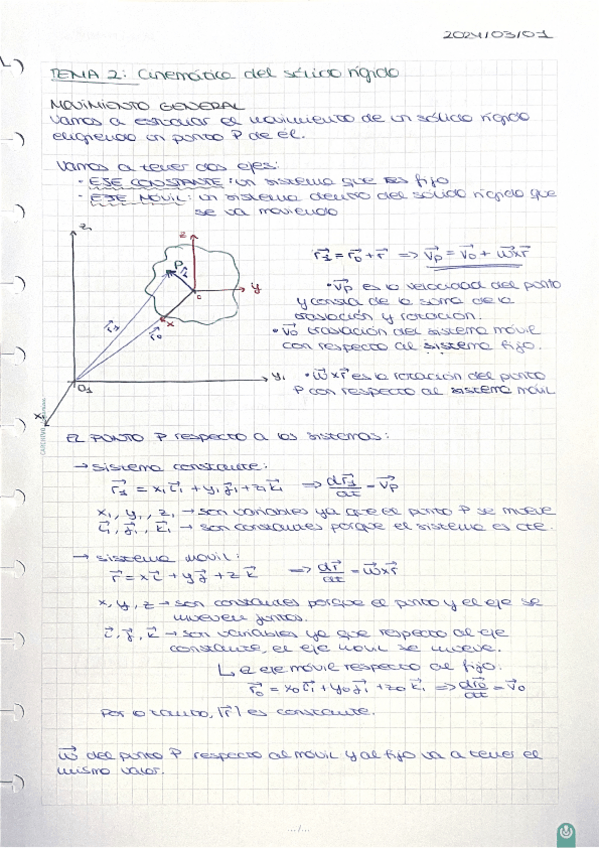 2024/03/01
TEMA 2: Cinemática del sólido rígido
MOVIMIENTO GENERAL
Vamos a estudiar el movimiento de un sólido rígido
eligiendo un punto P de él.
Vamos a tener dos ejes:
· EJE CONSTANTE: un sistema que es fijo
· EJE MOVIL: un sistema dentro del sólido rígido que
se va moviendo
z₁
z
P
r⃗
o
y
x
r⃗₁
r⃗₀
O₁
y₁
x₁
r⃗₁ = r⃗₀ + r⃗ => v⃗p = v⃗₀ + w⃗xr⃗
· v⃗p es la velocidad del punto
y consta de la suma de la
traslación y rotación.
· v⃗₀ traslación del sistema móvil
con respecto al sistema fijo.
· w⃗xr⃗ es la rotación del punto
P con respecto al sistema móvil
EL PUNTO P respecto a los sistemas:
→ sistema constante:
r⃗₁ = x₁i⃗₁ + y₁j⃗₁ + z₁k⃗₁ => dr⃗₁/dt = v⃗p
x₁, y₁, z₁ → son variables ya que el punto P se mueve
i⃗₁, j⃗₁, k⃗₁ → son constantes porque el sistema es cte.
→ sistema movil:
r⃗ = xi⃗ + yj⃗ + zk⃗ => dr⃗/dt = w⃗xr⃗
x, y, z → son constantes porque el punto y el eje se
mueven juntos.
i⃗, j⃗, k⃗ → son variables ya que respecto al eje
constante, el eje movil se mueve.
↳ el eje móvil respecto al fijo:
r⃗₀ = x₀i⃗₁ + y₀j⃗₁ + z₀k⃗₁ => dr⃗₀/dt = v⃗₀
Por lo tanto, |r⃗| es constante.
w⃗ del punto P respecto al móvil y al fijo va a tener el
mismo valor.
.../...